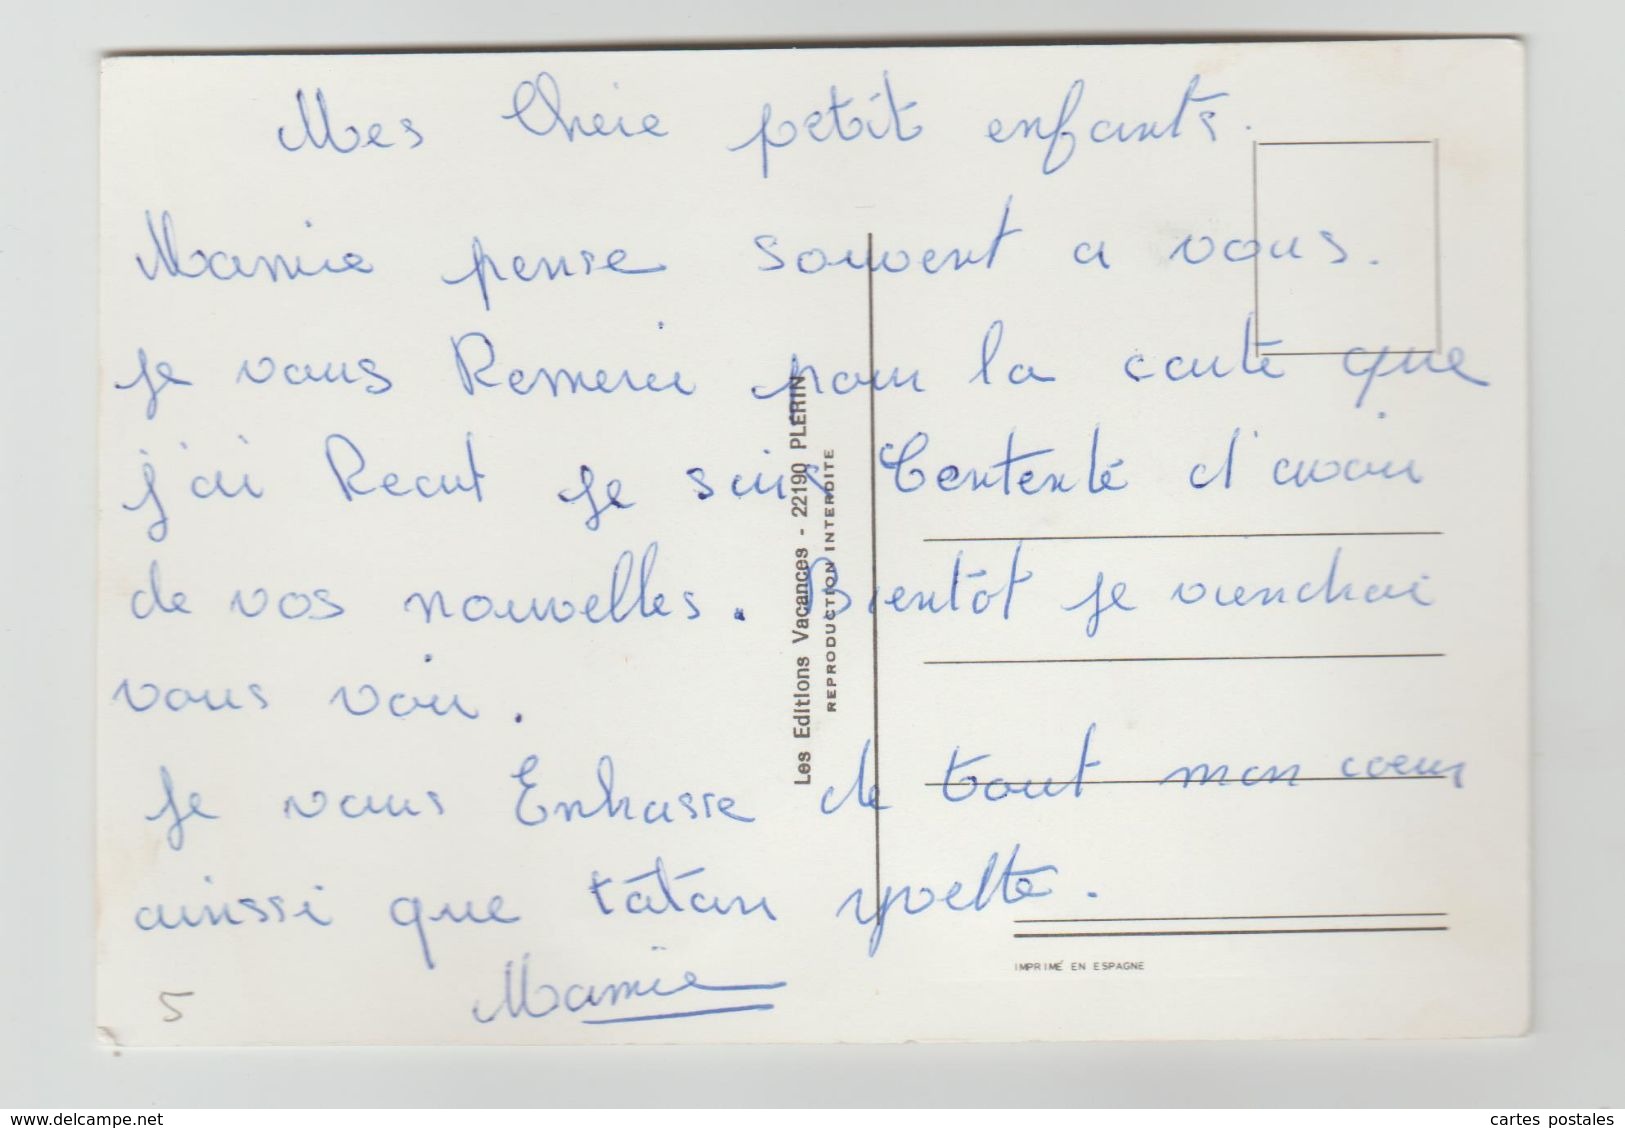 Mes Cheie petit enfants.
Mamie pense souvent a vous.
je vous Remerci pour la carte que
j'ai Recut je suis Contente d'avoir
de vos nouvelles. Bientôt je viendrai
vous voir.
je vous Enbrasse de tout mon cœur
ainssi que tatan yvette.
Mamie
5
Les Editions Vacances - 22190 PLERIN
REPRODUCTION INTERDITE
IMPRIMÉ EN ESPAGNE
www.delcampe.net
cartes postales